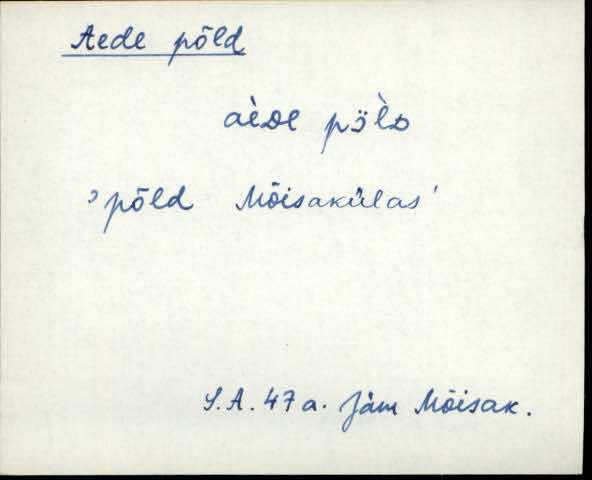 Aede põld
aède pö̀lᴅ
'põld Mõisakülas'
S.A. 47 a. Jäm Mõisak.